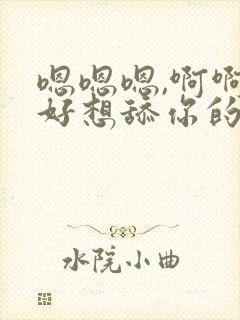 嗯嗯嗯,啊啊
好想舔你的
水院小曲